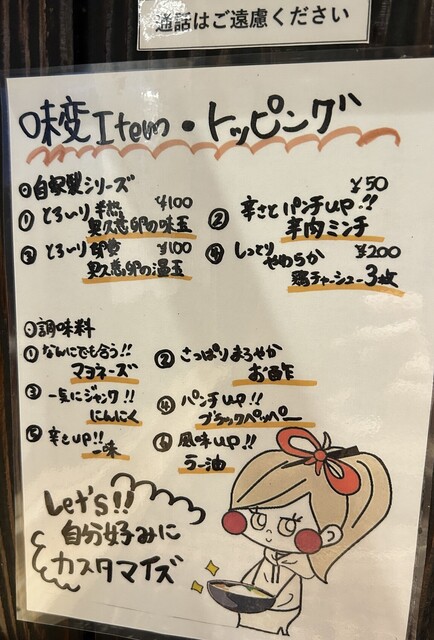 通話はご遠慮ください
味変Item・トッピング
◎自家製シリーズ
① とろ〜り半熟 ¥100
奥久慈卵の味玉
② 辛さとパンチup!! ¥50
辛肉ミンチ
③ とろ〜り ¥100
奥久慈卵の温玉
④ しっとりやわらか ¥200
鶏チャーシュー3枚
◎調味料
① なんにでも合う!!
マヨネーズ
② さっぱりまろやか
お酢
③ 一気にジャンク!!
にんにく
④ パンチup!!
ブラックペッパー
⑤ 辛さup!!
一味
⑥ 風味up!!
ラー油
Let's!!
自分好みに
カスタマイズ